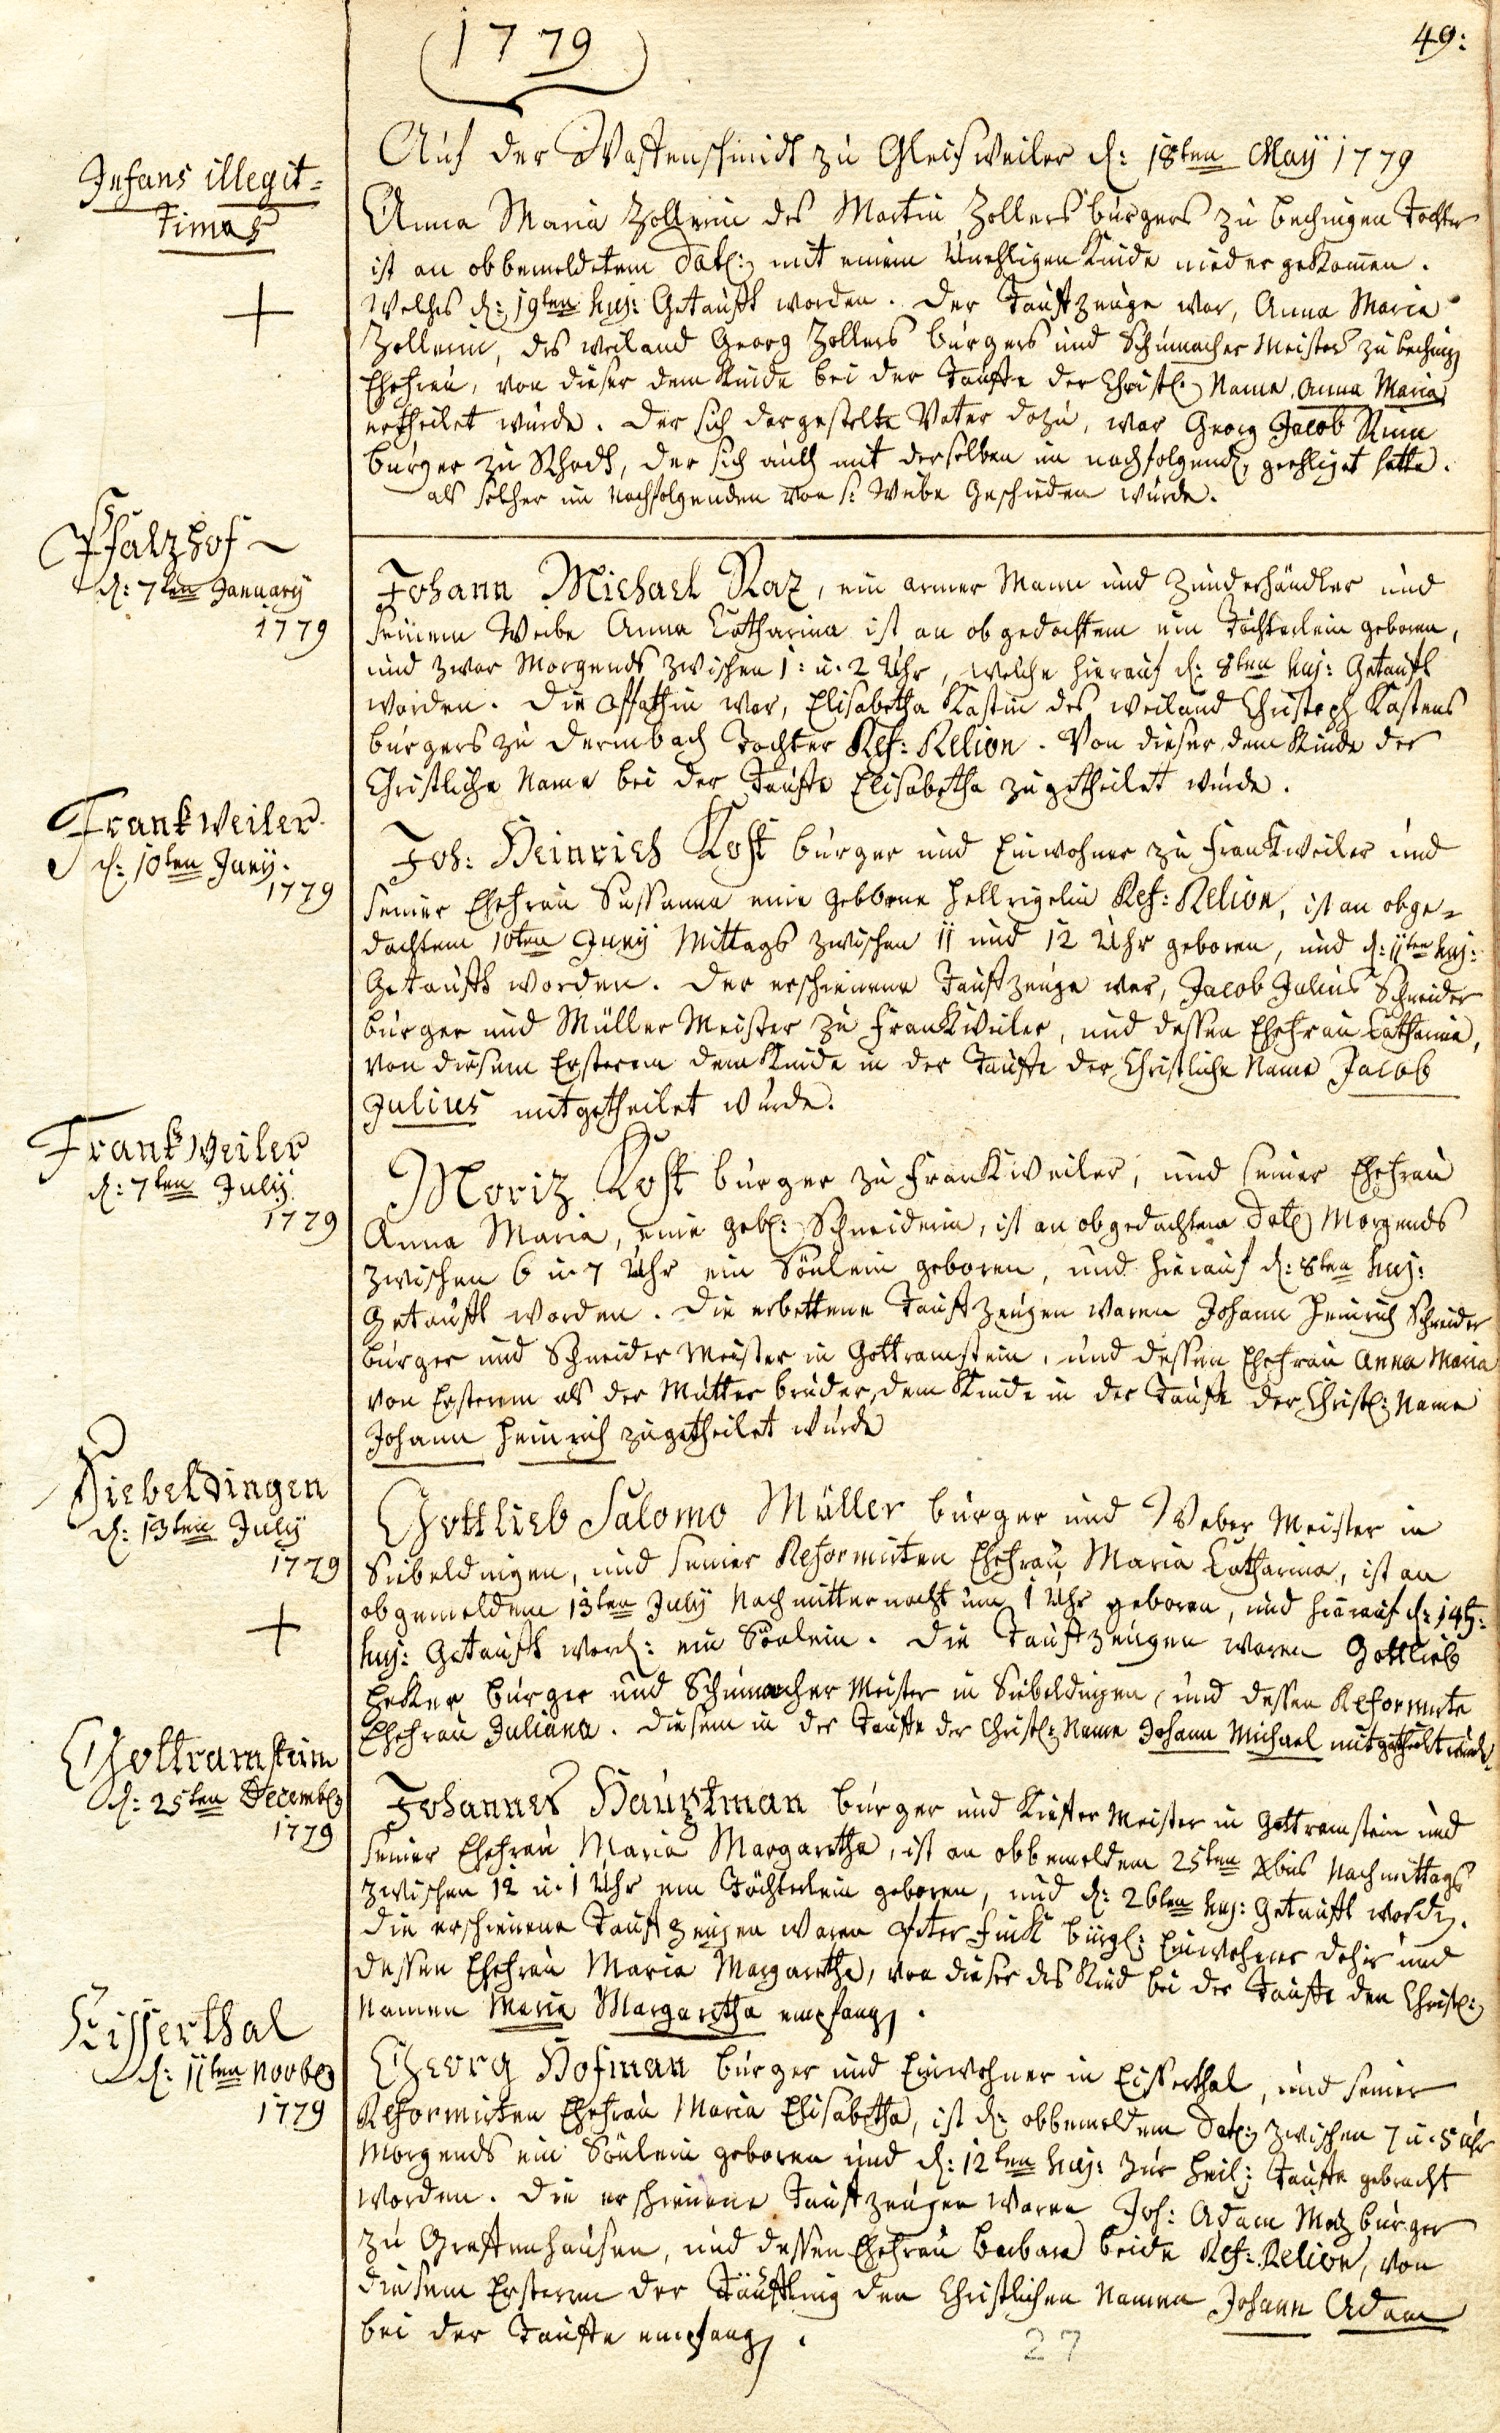 1779
49:
Infans illegit=
timas
Auf der Waltenschmidt zu Gleisweiler d: 18ten May 1779
Anna Maria Zollerin des Martin Zollers bürgers zu bechingen Tochter
ist an obbemeldetem dato: mit einem Unehligen Kinde niedergekommen.
Welches d: 19ten huj: Getaufft worden. Der Taufzeuge war, Anna Maria
Zollerin, des weiland Georg Zollers bürgers und Schumacher Meisters zu beching
Ehefrau, von dieser dem Kinde bei der Tauffe der Christl: Name Anna Maria
ertheilet wurde. Der sich dargestelte Vater dazu, war Georg Jacob
bürger zu Rhodt, der sich auch mit derselben im nachfolgend geehliget hatte.
als solcher im Nachfolgenden von s: Weibe Geschieden wurde.
Pfalzhof
d: 7ten January
1779
Johann Michael Raz, ein armer Mann und Zunderhändler und
seinem Weibe Anna Catharina ist an obgedachtem ein Töchterlein geboren,
und zwar Morgends zwischen 1: u. 2 Uhr, welche hierauf d: 8ten huj: Getauft
worden. Die Pfathin war, Elisabetha Kastin des weiland Christoph Kastens
bürgers zu Dernbach Tochter Ref: Relion. Von dieser dem Kinde der
Christliche Name bei der Tauffe Elisabetha zugetheilet wurde.
Frankweiler
d: 10ten Juny.
1779
Joh: Heinrich Kost bürger und Einwohner zu Frankweiler und
seiner Ehefrau Sussanna eine gebborne Hellrigelin Ref: Relion, ist an obge=
dachtem 10ten Juny Mittags zwischen 11 und 12 Uhr geboren, und d: 11ten huj:
Getaufft worden. Der erschienene Taufzeuge war, Jacob Julius Schneider
bürger und Müller Meister zu Frankweiler, und dessen Ehefrau Catharina,
von diesem Ersterem dem Kinde in der Tauffe der Christliche Name Jacob
Julius mitgetheilet wurde.
Frankweiler
d: 7ten July
1779
Moriz Kost bürger zu Frankweiler, und seiner Ehefrau
Anna Maria, eine geb: Schneiderin, ist an obgedachtem dato Morgends
zwischen 6 u. 7 Uhr ein Sönlein geboren, und hierauf d: 8ten huj:
Getaufft worden. Die erbettene Taufzeugen waren Johann Heinrich Schneider
bürger und Schneider Meister in Gottramstein, und dessen Ehefrau Anna Maria
von Ersterem als der Mutter bruder, dem Kinde in der Tauffe der Christl: Name
Johann Heinrich zugetheilet wurde
Siebeldingen
d: 13ten July
1779
Gottlieb Salomo Müller bürger und Weber Meister in
Siebeldingen, und seiner Reformirten Ehefrau Maria Catharina, ist an
obgemeldem 13ten July Nachmitternacht um 1 Uhr geboren, und hierauf d: 14t:
huj: Getaufft word: ein Sönlein. Die Taufzeugen waren Gottlieb
Heker bürger und Schumacher Meister in Siebeldingen, und dessen Reformirte
Ehefrau Juliana. Diesem in der Tauffe der Christl: Name Johann Michael mitgetheilt wurde.
Gottramstein
d: 25ten Decemb
1779
Johannes Hauptman bürger und Kieffer Meister in Gottramstein und
seiner Ehefrau Maria Margaretha, ist an obbemeldem 25ten Xbris Nachmittags
zwischen 12 u. 1 Uhr ein Töchterlein geboren, und d: 26ten huj: Getaufft word.
Die erschienene Taufzeugen waren Peter Fink bürgl: Einwohner dahir und
dessen Ehefrau Maria Margaretha, von dieser das Kind bei der Tauffe den Christl:
Namen Maria Margaretha empfang.
Eisserthal
d: 11ten Novb
1779
Georg Hofman bürger und Einwohner in Eisserthal, und seiner
Reformirten Ehefrau Maria Elisabetha, ist d: obbemeldem dato: zwischen 7 u. 8 Uhr
Morgends ein Sönlein geboren und d: 12ten huj: zur heil: Tauffe gebracht
worden. Die erschienene Taufzeugen waren Joh: Adam Moz bürger
zu Greffenhausen, und dessen Ehefrau Barbara beide Ref: Relion, von
diesem Ersterem der Täuffling den Christlichen Namen Johann Adam
bei der Tauffe empfang.
27